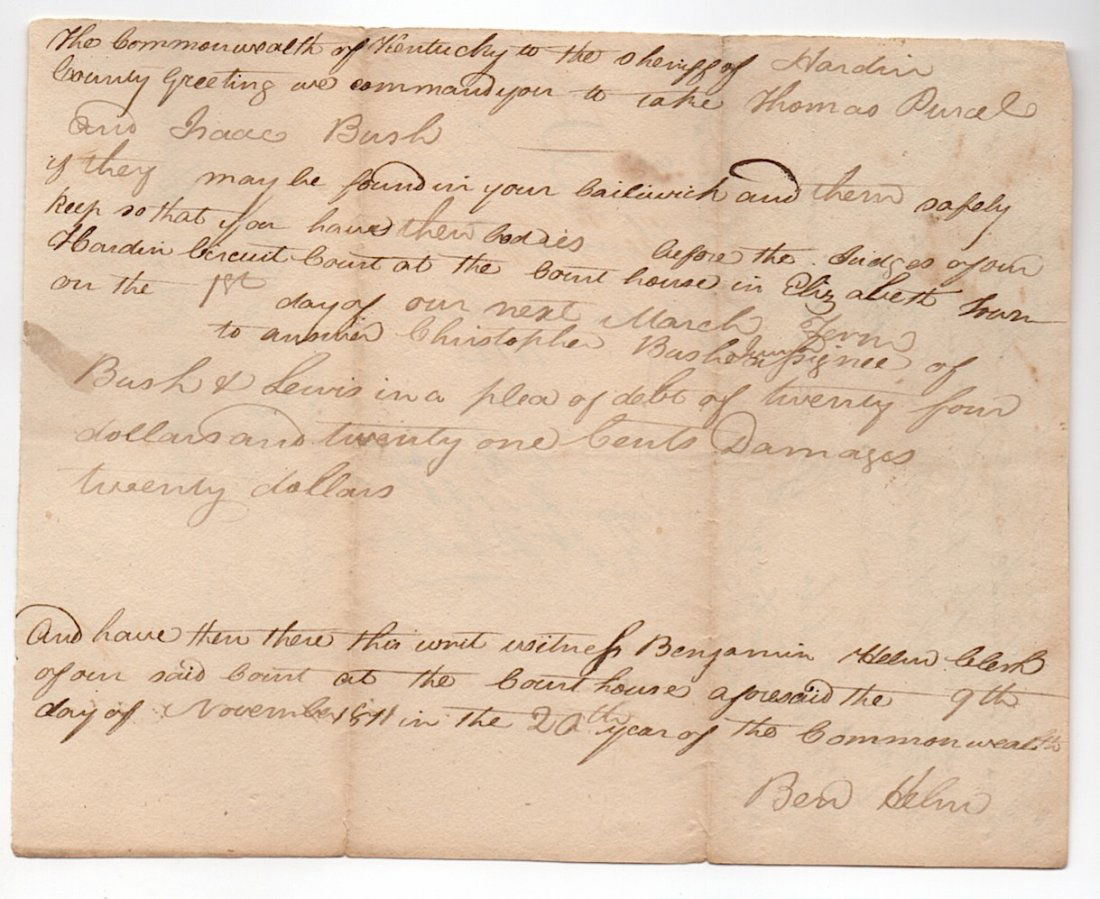 The Commonwealth of Kentucky to the Sheriff of Hardin
County Greeting we command you to take Thomas Purcel
and Isaac Bush
if they may be found in your bailiwick and them safely
keep so that you have their bodies before the Judges of our
Hardin Circuit Court at the Court house in Elizabeth Town
on the 1st day of our next March Term
to answer Christopher Bush assignee of
Bush & Lewis in a plea of debt of twenty four
dollars and twenty one Cents Damages
twenty dollars
And have then there this writ witness Benjamin Helm Clerk
of our said Court at the Court house aforesaid the 9th
day of November 1811 in the 20th year of the Commonwealth
Ben Helm